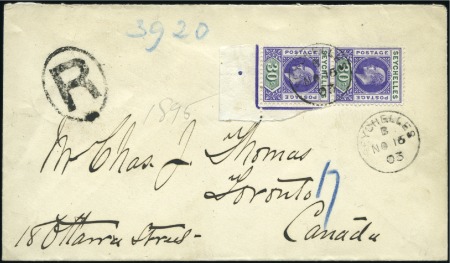 3920
POSTAGE POSTAGE
SEYCHELLES SEYCHELLES
30 30
POSTAGE POSTAGE
R
1896
SEYCHELLES
B
NO 16
03
Mr Chas. J. Thomas
Toronto
18 Ottawa Street
Canada